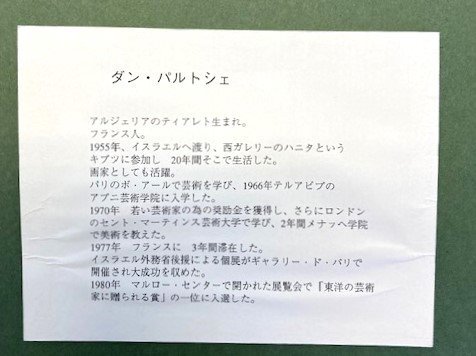 ダン・パルトシェ
アルジェリアのティアレト生まれ。
フランス人。
1955年、イスラエルへ渡り、西ガレリーのハニタという
キブツに参加し　20年間そこで生活した。
画家としても活躍。
パリのボ・アールで芸術を学び、1966年テルアビブの
アブニ芸術学院に入学した。
1970年　若い芸術家の為の奨励金を獲得し、さらにロンドン
のセント・マーティンス芸術大学で学び、2年間メナッヘ学院
で美術を教えた。
1977年　フランスに　3年間滞在した。
イスラエル外務省後援による個展がギャラリー・ド・パリで
開催され大成功を収めた。
1980年　マルロー・センターで開かれた展覧会で「東洋の芸術
家に贈られる賞」の一位に入選した。